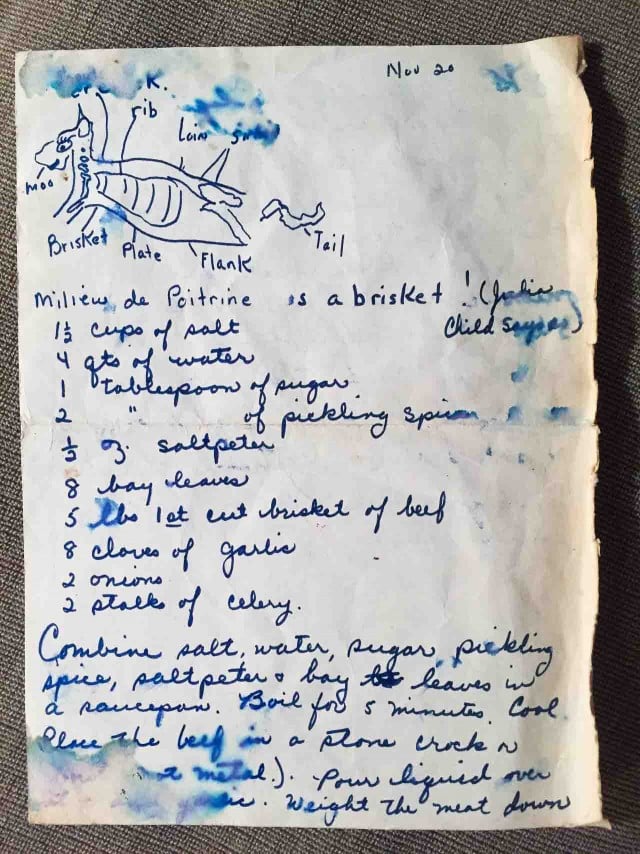 Nov 20
rib
Loin
moo
Brisket
Plate
Flank
Tail
Milieu de Poitrine is a brisket! (Julia
Child says so)
1½ cups of salt
4 qts of water
1 tablespoon of sugar
2 " of pickling spice
⅓ oz. saltpeter
8 bay leaves
5 lbs 1st cut brisket of beef
8 cloves of garlic
2 onions
2 stalks of celery.
Combine salt, water, sugar, pickling
spice, saltpeter & bay leaves in
a saucepan. Boil for 5 minutes. Cool
Place the beef in a stone crock or
metal.). Pour liquid over
Weight the meat down